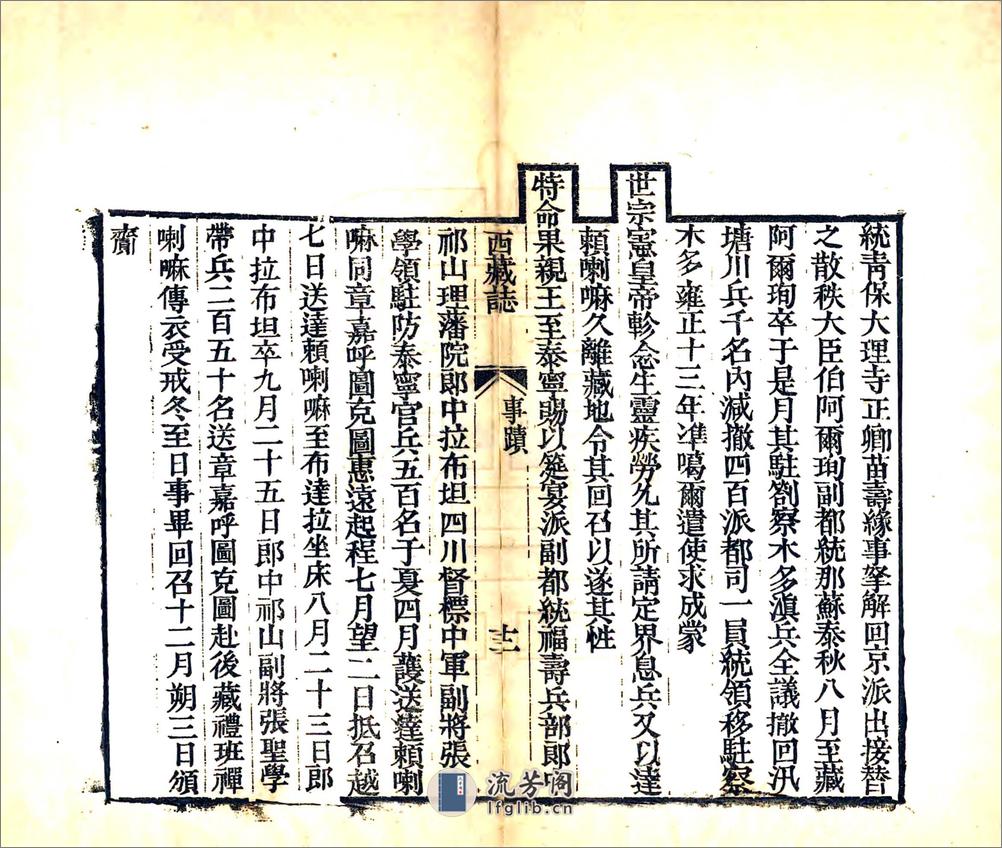 統青保大理寺正卿苗壽緣事拏解回京派出接替
之散秩大臣伯阿爾珣副都統那蘇泰秋八月至藏
阿爾珣卒于是月其駐劄察木多滇兵全議撤回汛
塘川兵千名內減撤四百派都司一員統領移駐察
木多雍正十三年準噶爾遣使求成蒙
世宗憲皇帝軫念生靈疾勞允其所請定界息兵又以達
賴喇嘛久離藏地令其回召以遂其性
特命果親王至泰寧賜以筵宴派副都統福壽兵部郎中
西藏誌
事蹟
十二
祁山理藩院郎中拉布坦四川督標中軍副將張聖
學領駐防泰寧官兵五百名于夏四月護送達賴喇
嘛同章嘉呼圖克圖惠遠起程七月望二日抵召越
七日送達賴喇嘛至布達拉坐床八月二十三日郎
中拉布坦卒九月二十五日郎中祁山副將張聖學
帶兵二百五十名送章嘉呼圖克圖赴後藏禮班禪
喇嘛傳衣受戒冬至日事畢回召十二月朔三日頒
賚
流芳閣
lfglib.cn